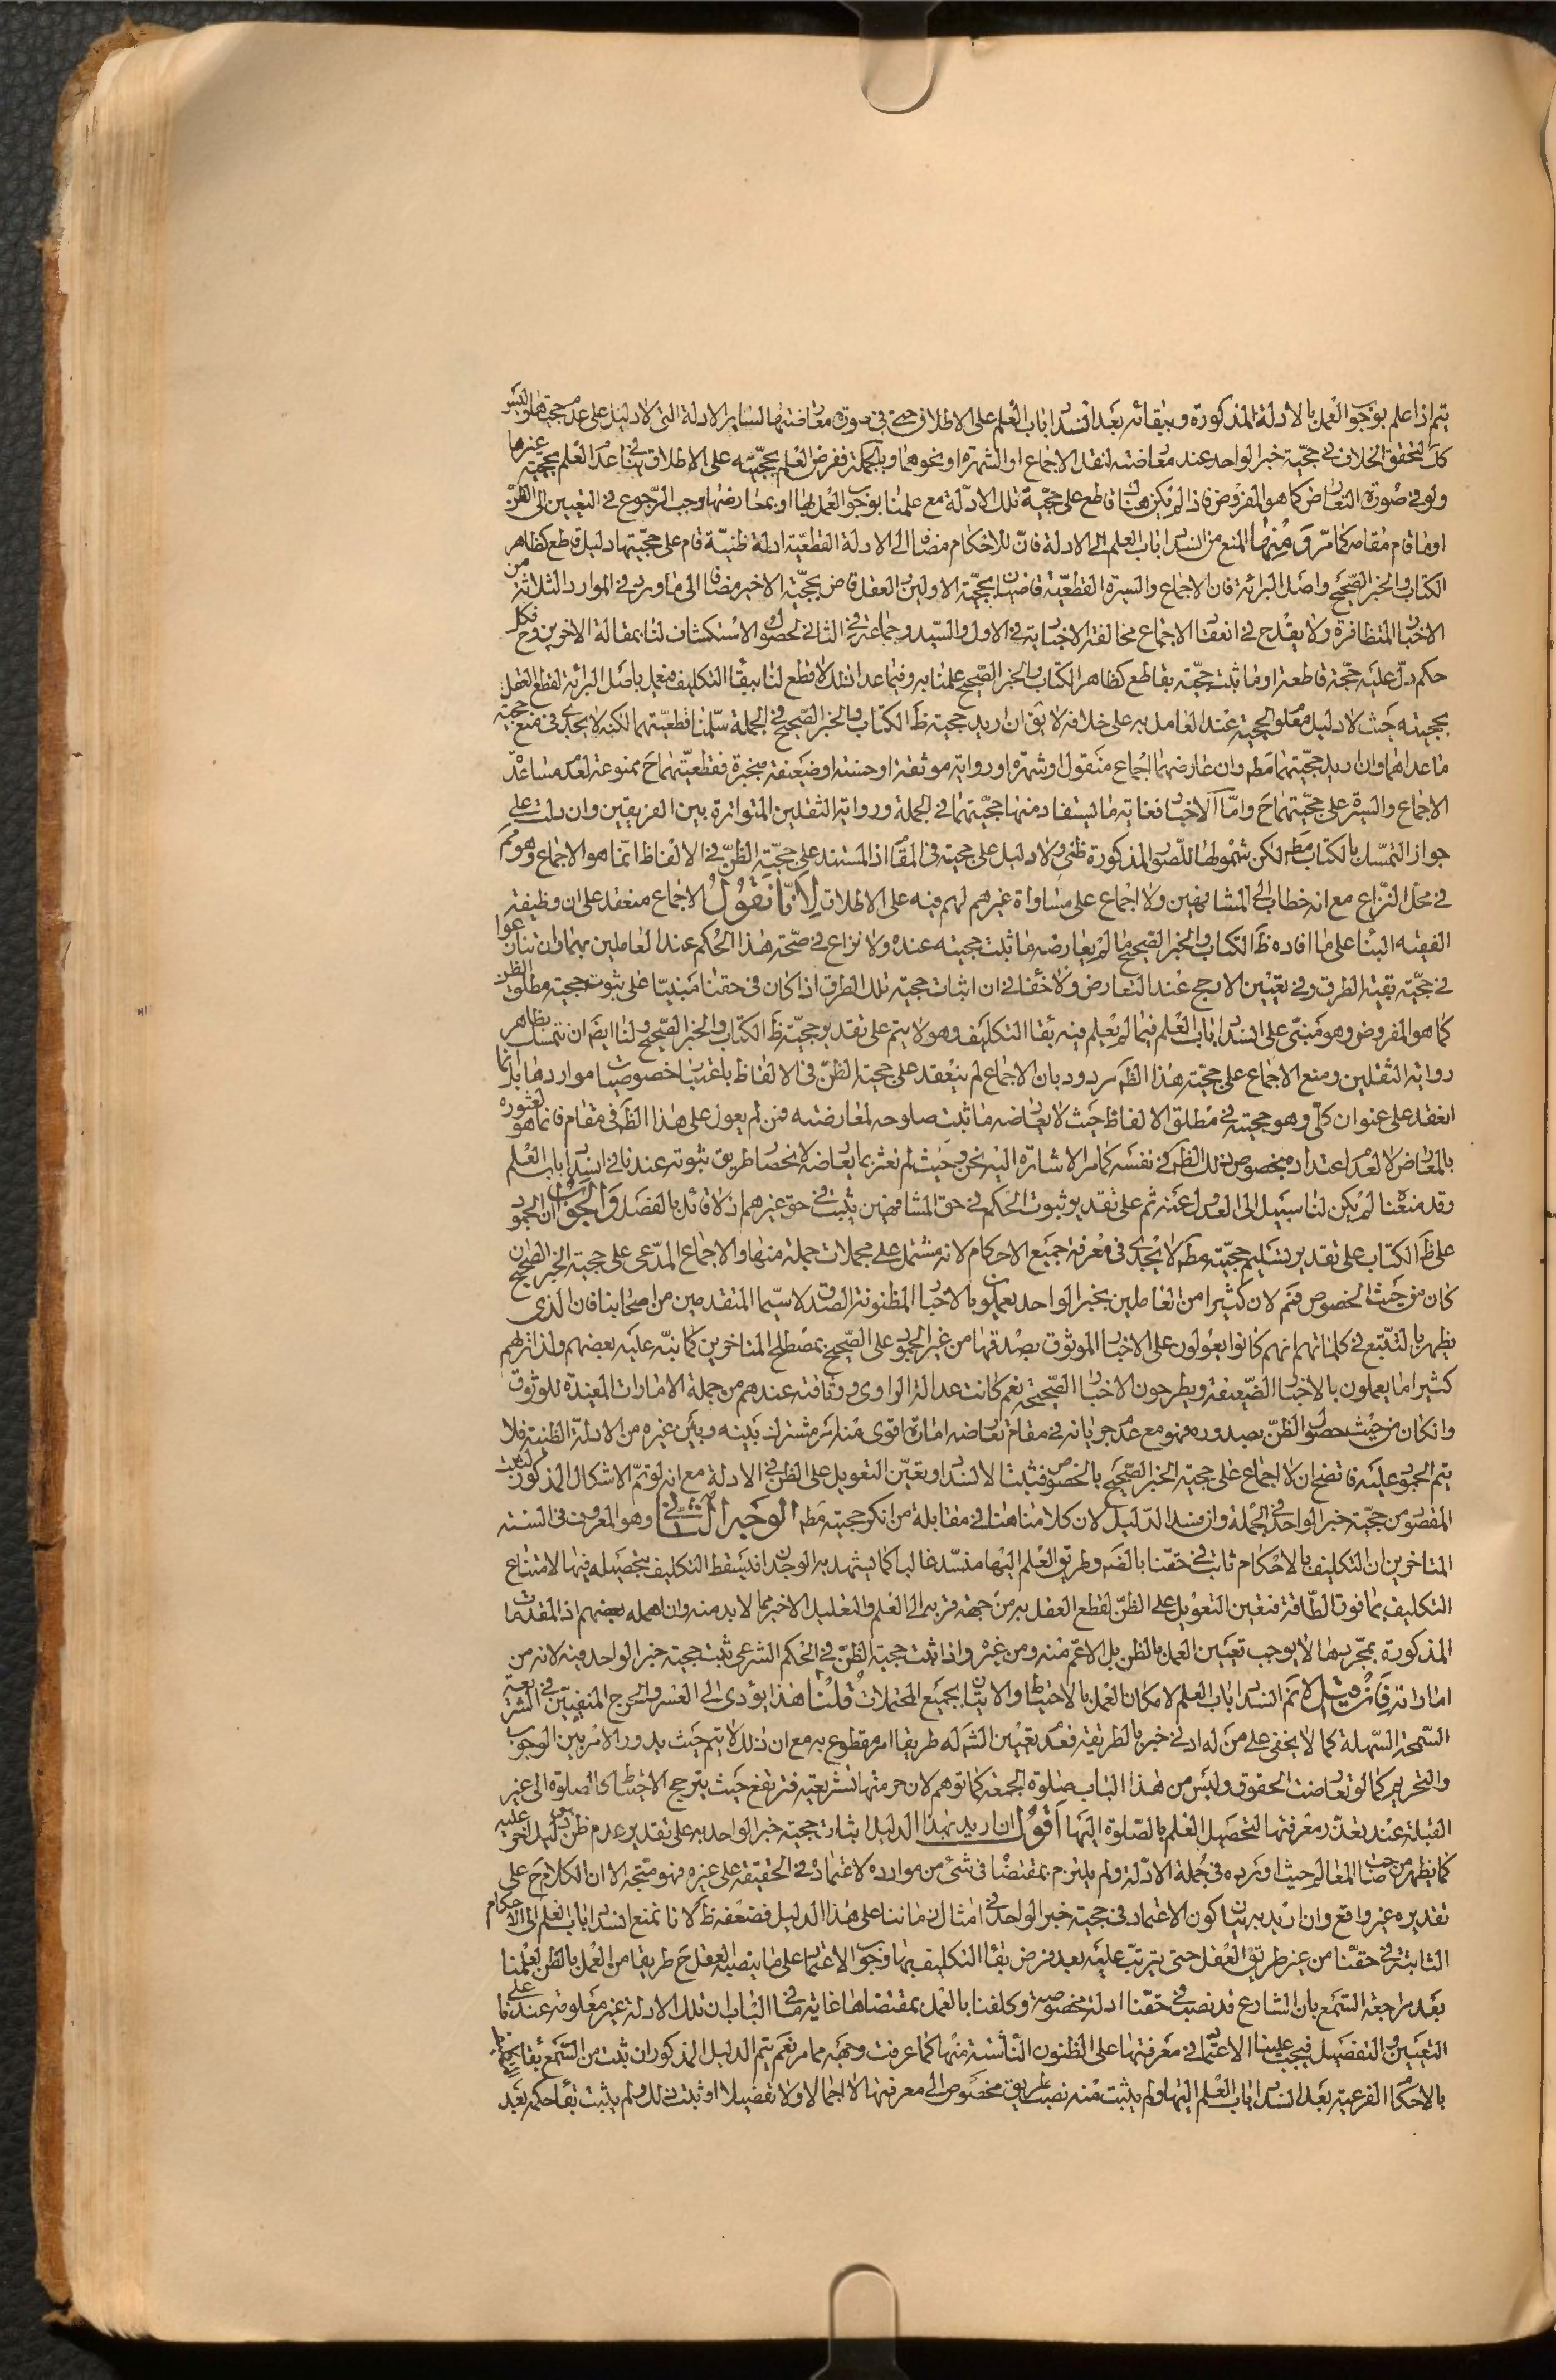 يتم اذا علم بوجوب العمل بالادلة المذكورة وببقائه بعد انسداد باب العلم على الاطلاق حتى فى صورة معارضتها لساير الادلة التى لا دليل على عدم حجيتها وليس
كك لتحقق الخلاف فى حجية خبر الواحد عند معارضته لنقل الاجماع او الشهرة او نحوهما وبالجملة ففرض العلم بحجيته على الاطلاق ينافى عدم العلم بحجية غيرها
ولو فى صورة التعارض كما هو المفروض فاذا لم يكن هناك قاطع على حجية تلك الادلة مع علمنا بوجوب العمل بها او بمعارضها وجب الرجوع فى التعيين الى الظن
او ما قام مقامه كما مر ومنها المنع من انسداد باب العلم الى الادلة فان للاحكام مضافا الى الادلة القطعية ادلة ظنية قام على حجيتها دليل قاطع كظاهر
الكتاب والخبر الصحيح واصل البرائة فان الاجماع والسيرة القطعية قاضيان بحجية الاولين والعقل قاض بحجية الاخير مضافا الى ما ورد فى الموارد الثلاثة من
الاخبار المتظافرة ولا يقدح فى انعقاد الاجماع مخالفة الاخبارية فى الاول والسيد وجماعة فى الثانى لحصول الاستكشاف لنا بمقالة الاخرين وح فكل
حكم دل عليه حجة قاطعة او ما ثبت حجيته بقاطع كظاهر الكتاب والخبر الصحيح علمنا به وفيما عدا ذلك لا قطع لنا ببقاء التكليف فنعمل باصل البرائة لقطع العقل
بحجيته حيث لا دليل معلوم الحجية عند العامل به على خلافه لا يق ان اريد حجية ظ الكتاب والخبر الصحيح فى الجملة سلمنا قطعيتهما لكنه لا يجدى فى منع حجية
ما عداهما وان اريد حجيتهما مط وان عارضهما اجماع منقول او شهرة او رواية موثقة او حسنة او ضعيفة منجبرة فقطعيتهما ح ممنوعة لعدم مساعدة
الاجماع والسيرة على حجيتهما ح واما الاخبار فغاية ما يستفاد منها حجيتهما فى الجملة ورواية الثقلين المتواترة بين الفريقين وان دلت على
جواز التمسك بالكتاب مط لكن شمولها للصور المذكورة ظنى ولا دليل على حجيته فى المقام اذ المستند على حجية الظن فى الالفاظ انما هو الاجماع وهو مم
فى محل النزاع مع انه خطاب الى المشافهين ولا اجماع على مساواة غيرهم لهم فيه على الاطلاق لانا نقول الاجماع منعقد على ان وظيفة
الفقيه البناء على ما افاده ظ الكتاب والخبر الصحيح ما لم يعارضه ما ثبت حجيته عنده ولا نزاع فى صحة هذا الحكم عند العاملين بهما وان تنازعوا
فى حجية بقية الطرق وفى تعيين الارجح عند التعارض ولا خفاء فى ان اثبات حجية تلك الطرق اذا كان فى حقنا مبنيا على ثبوت حجية مطلق الظن
كما هو المفروض وهو مبنى على انسداد باب العلم فيما لم يعلم فيه بقاء التكليف وهو لا يتم على تقدير حجية ظ الكتاب والخبر الصحيح ولنا ايضا ان نتمسك بظاهر
رواية الثقلين ومنع الاجماع على حجية هذا الظ مردود بان الاجماع لم ينعقد على حجية الظن فى الالفاظ باعتبار خصوصيات مواردها بل انما
انعقد على عنوان كلى وهو حجيته فى مطلق الالفاظ حيث لا يعارضه ما ثبت صلوحه لمعارضته فمن لم يعول على هذا الظ فى مقام فانما هو لعثوره
بالمعارض لا لعدم اعتداده بخصوص ذلك الظ فى نفسه كما مر الاشارة اليه نحن وحيث لم نعثر بما يعارضه لانحصار طريق ثبوته عندنا فى انسداد باب العلم
وقد منعناه لم يكن لنا سبيل الى العدول عنه ثم على تقدير ثبوت الحكم فى حق المشافهين يثبت فى حق غيرهم اذ لا قائل بالفصل والجواب ان الجمود
على ظ الكتاب على تقدير تسليم حجيته مط لا يجدى فى معرفة جميع الاحكام لانه مشتمل على مجملات جملة منها والاجماع المدعى على حجية الخبر الصحيح ان
كان من حيث الخصوص فمم لان كثيرا من العاملين بخبر الواحد يعملون بالاخبار المظنونة الصدق لا سيما المتقدمين من اصحابنا فان الذى
يظهر بالتتبع فى كلماتهم انهم كانوا يعولون على الاخبار الموثوق بصدقها من غير الجمود على الصحيح بمصطلح المتاخرين كما نبه عليه بعضهم ولذا تراهم
كثيرا ما يعملون بالاخبار الضعيفة ويطرحون الاخبار الصحيحة نعم كانت عدالة الراوى ووثاقته عندهم من جملة الامارات المفيدة للوثوق
وان كان من حيث حصول الظن بصدوره فهو مع عدم جريانه فى مقام تعارضه امارة اقوى منه امر مشترك بينه وبين غيره من الادلة الظنية فلا
يتم الجمود عليه فاتضح ان لا اجماع على حجية الخبر الصحيح بالخصوص فثبت الانسداد وتعين التعويل على الظن فى الادلة مع انه لو تم الاشكال المذكور ثبت
المقصود من حجية خبر الواحد فى الجملة وان فسد الدليل لان كلامنا هنا فى مقابلة من انكر حجيته مط الوجه الثانى وهو المعروف فى السنة
المتاخرين ان التكليف بالاحكام ثابت فى حقنا بالضرورة وطريق العلم اليها منسد غالبا كما يشهد به الوجدان فيسقط التكليف بتحصيله فيها لامتناع
التكليف بما فوق الطاقة فتعين التعويل على الظن لقطع العقل به من جهة قربه الى العلم والتعليل الاخير مما لا بد منه وان اهمله بعضهم اذ المقدمات
المذكورة بمجردها لا يوجب تعيين العمل بالظن بل الاعم منه ومن غيره واذا ثبت حجية الظن فى الحكم الشرعى ثبت حجية خبر الواحد فيه لانه من
اماراته فان قيل لا تم انسداد باب العلم لامكان العمل بالاحتياط والاتيان بجميع المحتملات قلنا هذا يؤدى الى العسر والحرج المنفيين فى الشريعة
السمحة السهلة كما لا يخفى على من له ادنى خبر بالطريقة فعدم تعيين الش له طريقا امر مقطوع به مع ان ذلك لا يتم حيث يدور الامر بين الوجوب
والتحريم كما لو تعارضت الحقوق وليس من هذا الباب صلوة الجمعة كما توهم لان حرمتها تشريعية فترتفع حيث يترجح الاحتياط كالصلوة الى غير
القبلة عند تعذر معرفتها لتحصيل العلم بالصلوة اليها اقول ان اريد بهذا الدليل اثبات حجية خبر الواحد به على تقدير عدم ظن بدليل اخر عليه
كما يظهر من صاحب المعالم حيث اورده فى جملة الادلة ولم يلتزم بمقتضاه فى شئ من موارده لاعتماده فى الحقيقة على غيره فهو متجه الا ان الكلام ح على
تقديره غير واقع وان اريد به بيان كون الاعتماد فى حجية خبر الواحد فى امثال زماننا على هذا الدليل فضعفه ظ لانا نمنع انسداد باب العلم الى الاحكام
الثابتة فى حقنا من غير طريق العقل حتى يترتب عليه بعد فرض بقاء التكليف بها وجوب الاعتماد على ما ينصبه العقل ح طريقا من العمل بالظن لعلمنا
بعد مراجعة السمع بان الشارع قد نصب فى حقنا ادلة مخصوصة وكلفنا بالعمل بمقتضاها غاية ما فى الباب ان تلك الادلة غير معلومة عندنا على
التعيين والتفصيل فيجب علينا الاعتماد فى معرفتها على الظنون الناشئة منها كما عرفت وجهه مما مر نعم يتم الدليل المذكور ان ثبت من السمع بقاء
بالاحكام الفرعية بعد انسداد باب العلم اليها ولم يثبت منه نصب طريق مخصوص الى معرفتها لا اجمالا ولا تفصيلا او ثبت ذلك ولم يثبت بقاء حكمه بعد